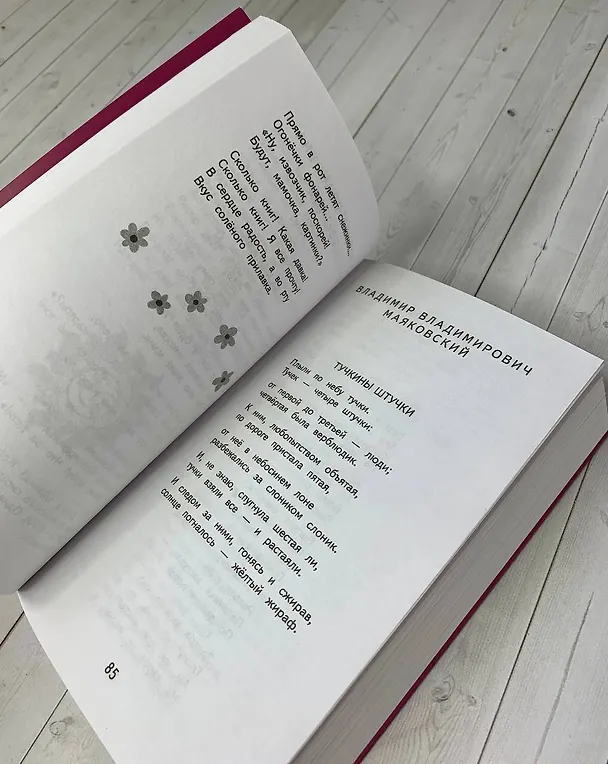 Прямо в рот летят снежинки...
Огонёчки фонарей...
«Ну, извозчик, поскорей!
Будут, мамочка, картинки!»
Сколько книг! Какая давка!
Сколько книг! Я все прочту!
В сердце радость, а во рту
Вкус солёного прилавка.
ВЛАДИМИР ВЛАДИМИРОВИЧ
МАЯКОВСКИЙ
ТУЧКИНЫ ШТУЧКИ
Плыли по небу тучки.
Тучек — четыре штучки:
от первой до третьей — люди;
четвёртая была верблюдик.
К ним, любопытством объятая,
по дороге пристала пятая,
от неё в небосинем лоне
разбежались за слоником слоник.
И, не знаю, спугнула шестая ли,
тучки взяли все — и растаяли.
И следом за ними, гонясь и сжирав,
солнце погналось — жёлтый жираф.
85